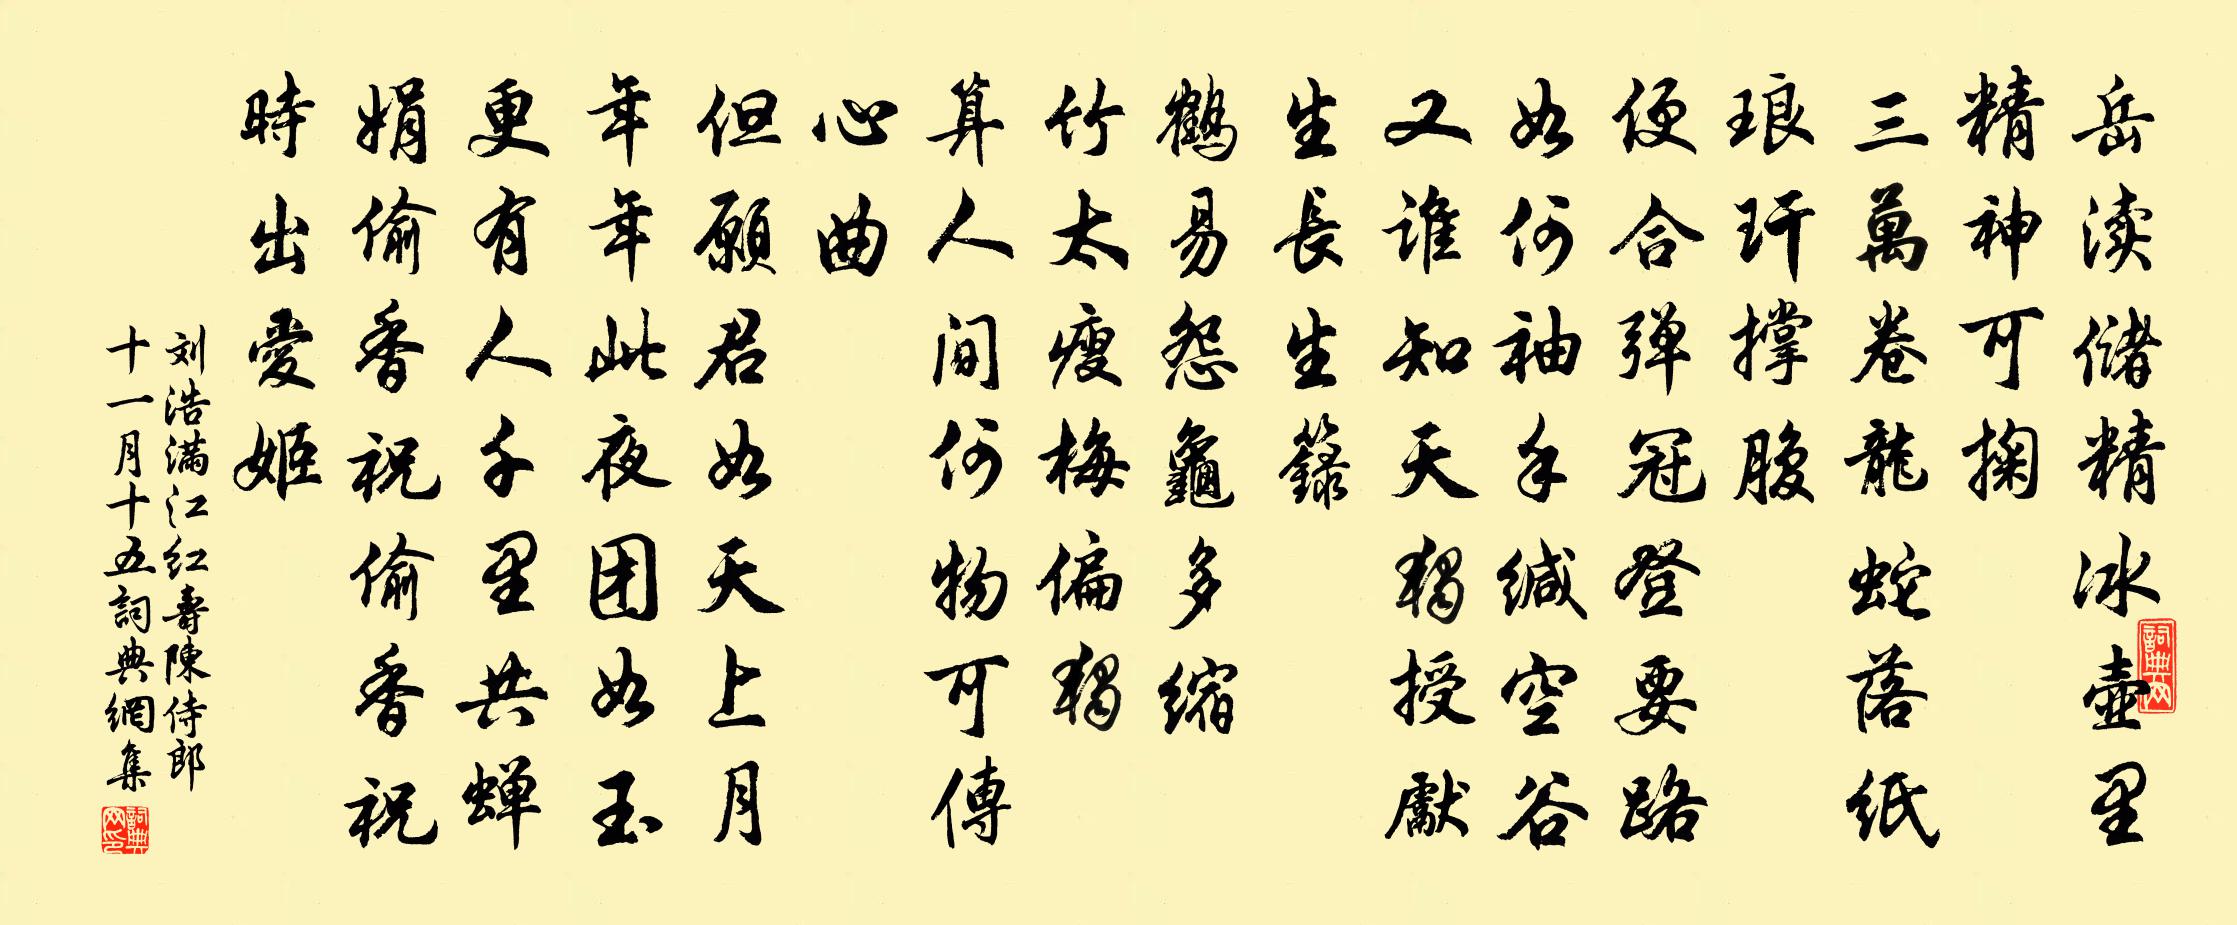 岳渎储精冰壶里
精神可掬
三萬卷龍蛇落纸
琅玕撑腹
便合弹冠登要路
如何袖手缄空谷
又谁知天独授厭
生長生籙
鶴易怨龜多缩
竹太瘦梅偏独
算人间何物可傳
心曲
但願君如天上月
年年此夜团如玉
更有人千里共蝉
娟偷香祝偷香祝
時出愛姬
刘浩满江红壽陳侍郎
十一月十五詞典網集
詞典网
詞典网印